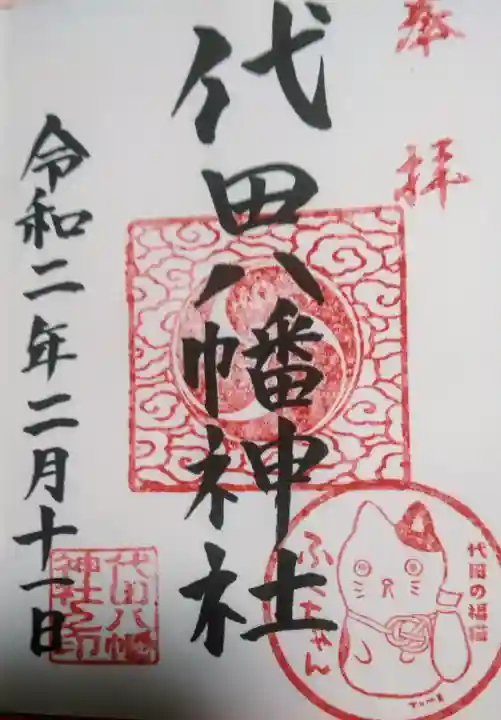 奉拝
代田八幡神社
令和二年二月十一日
代田八幡
神社之印
代田の福猫
ふくちゃん